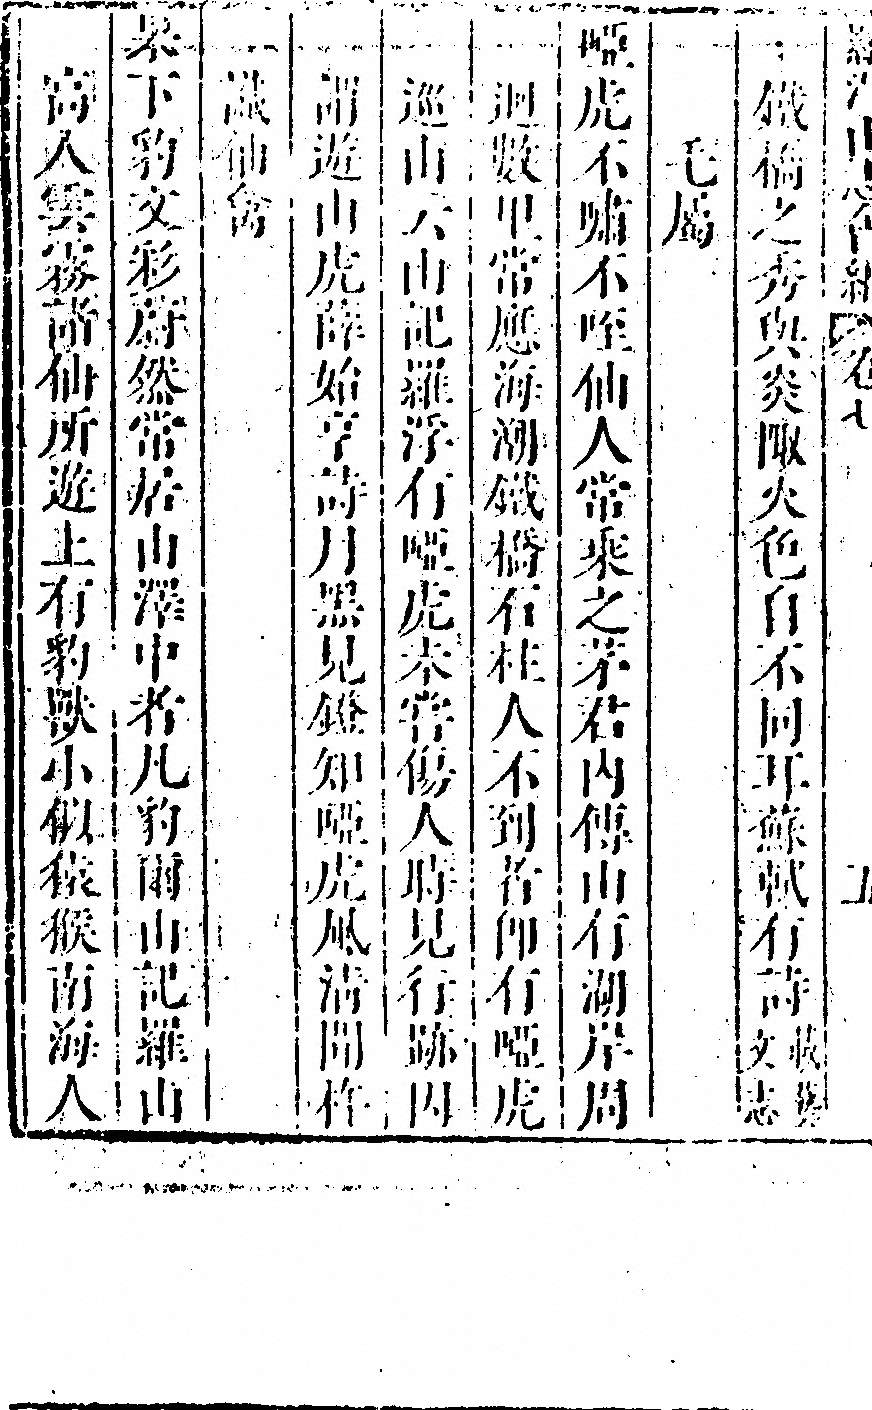 羅浮山志會編 卷七 五
鐵橋之秀與炎陬火色自不同耳蘇軾有詩載藝文志
毛屬
啞虎不嘯不咥仙人常乘之茅君內傳山有湖岸周
迴數里常應海潮鐵橋石柱人不到者卽有啞虎
巡山六山記羅浮有啞虎本嘗傷人時見行跡因
謂遊山虎薛始亨詩月黑見鐙知啞虎風淸聞杵
識仙禽
果下豹文彩蔚然常居山澤中者凡豹爾山記羅山
高入雲霧諸仙所遊上有豹獸小似猿猴南海人